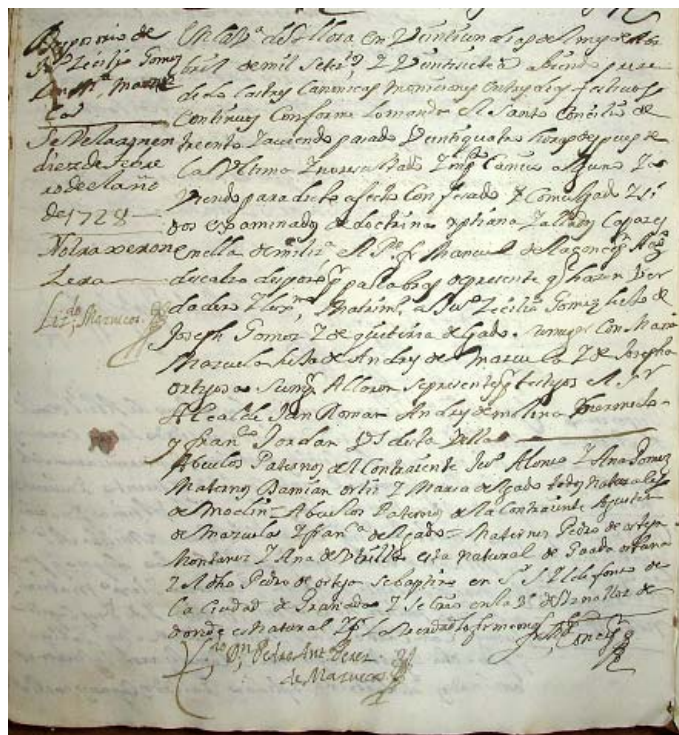 Desposorio de
Ju° Zecilio Gomez
con Mª. Mazue
la
Se Velaron en
diez de febre
ro de el año
de 1728
No traxeron
Zera
Liz.do Mazuecos
En la Vª de Yllora en Veintiun dias de el mes de
bril de mil Setez.s y Veintisiete abiendo prece
dido las tres Canonicas moniciones en tres dias festivos
Continuos Conforme lo manda el Santo Concilio de
trento y aviendo pasado Veintiquatro horas despues de
la Vltima y no resultado Impto Canco alguno y a
viendo para dicho efecto Confesado y Comulgado y si
dos examinados de doctrina xptiana y allados Capaces
en ella de mi liz.ª el Pe fr Manuel de
descalzo desposo por palabras de presente q hazen Ver
dadero y lexmo Matrimº a Juº Zecilio Gomez hijo de
Joseph Gomez y de quiteria delgado su muger Con Maria
Mazuela hija de Andres de Mazuela y de Josepha
ortega su muger Allaron se presentes por testigos el Sr
Alcalde Juan Roman Andres de molina
y franco Jordan Vs de esta Villa
Abuelos Paternos del Contraiente Juº Alonso y Ana Gomez
Maternos Damian ortiz y Maria delgado todos naturales
de Moclin = Abuelos Paternos de la Contraiente Agustin
de Mazuela y franca delgado = Maternos Pedro de ortega
Montanez y Ana de esta natural de
y el dho Pedro de ortega se baptizo en Sn Yldefonso de
la Ciudad de Granada y se crio en la Vª de Yznalloz de
donde es natural y por ser Verdad lo firmamos
Ldo Dn Pedro Ant Perez
de Mazuecos